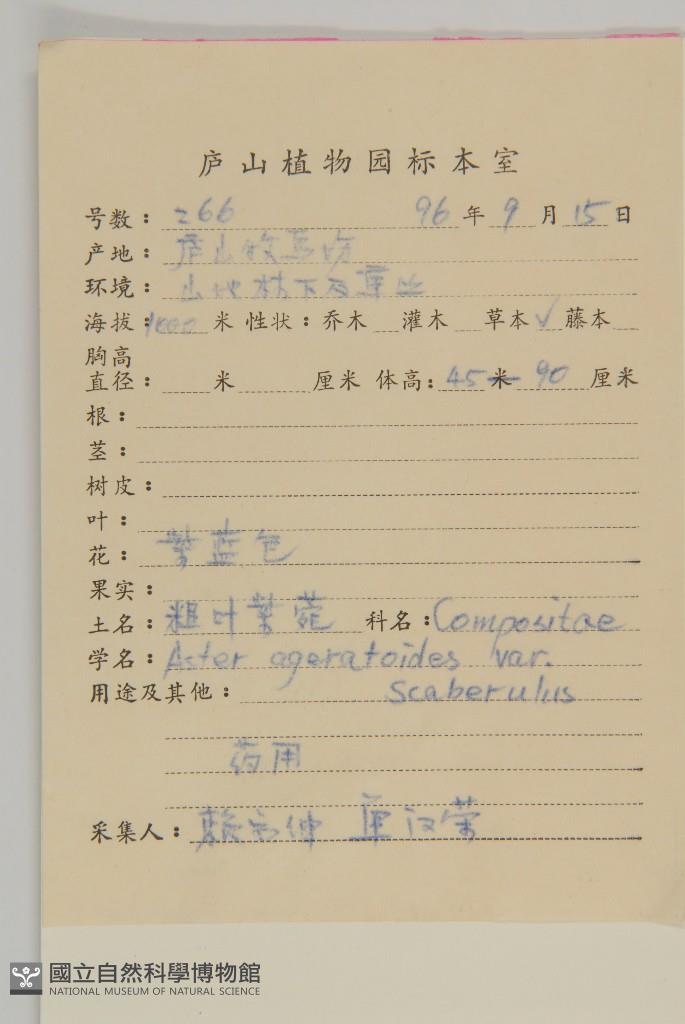 庐山植物园标本室
号数：266 96年9月15日
产地：庐山牧马场
环境：山地林下及草丛
海拔：1000米 性状：乔木 灌木 草本✓ 藤本
胸高
直径： 米 厘米 体高：45米90厘米
根：
茎：
树皮：
叶：
花：紫蓝色
果实：
土名：粗叶紫菀 科名：Compositae
学名：Aster ageratoides var.
用途及其他： Scaberulus
药用
采集人：
國立自然科學博物館
NATIONAL MUSEUM OF NATURAL SCIENCE